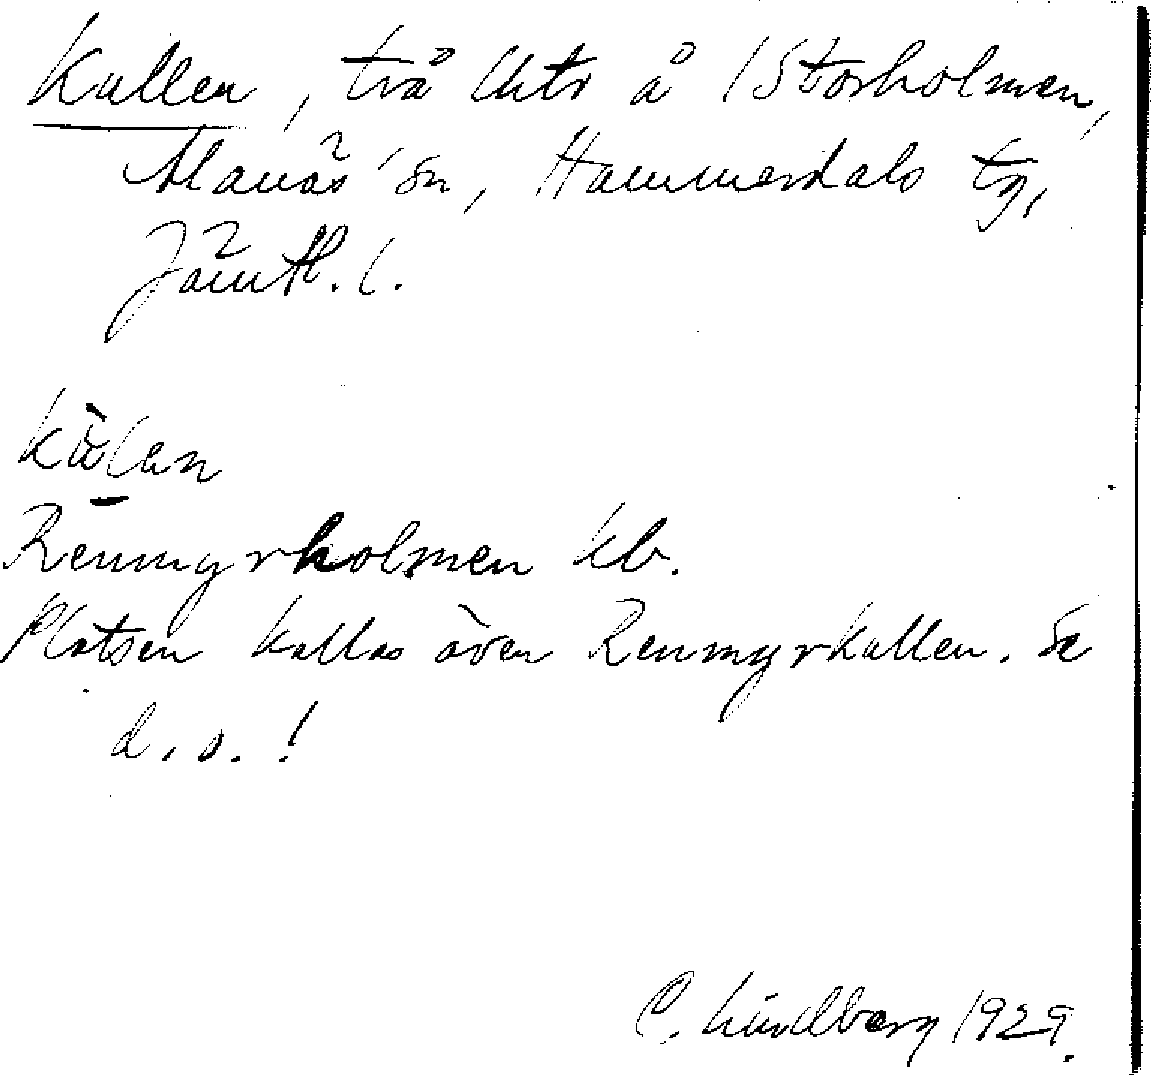 Kullen, två lhtr å 1 Storholmen,
Alanäs sn, Hammerdals tg,
Jämtl. l.
Renmyrholmen kb.
Platsen kallas även Renmyrkullen. Se
d. o. !
C. Lindberg 1929.